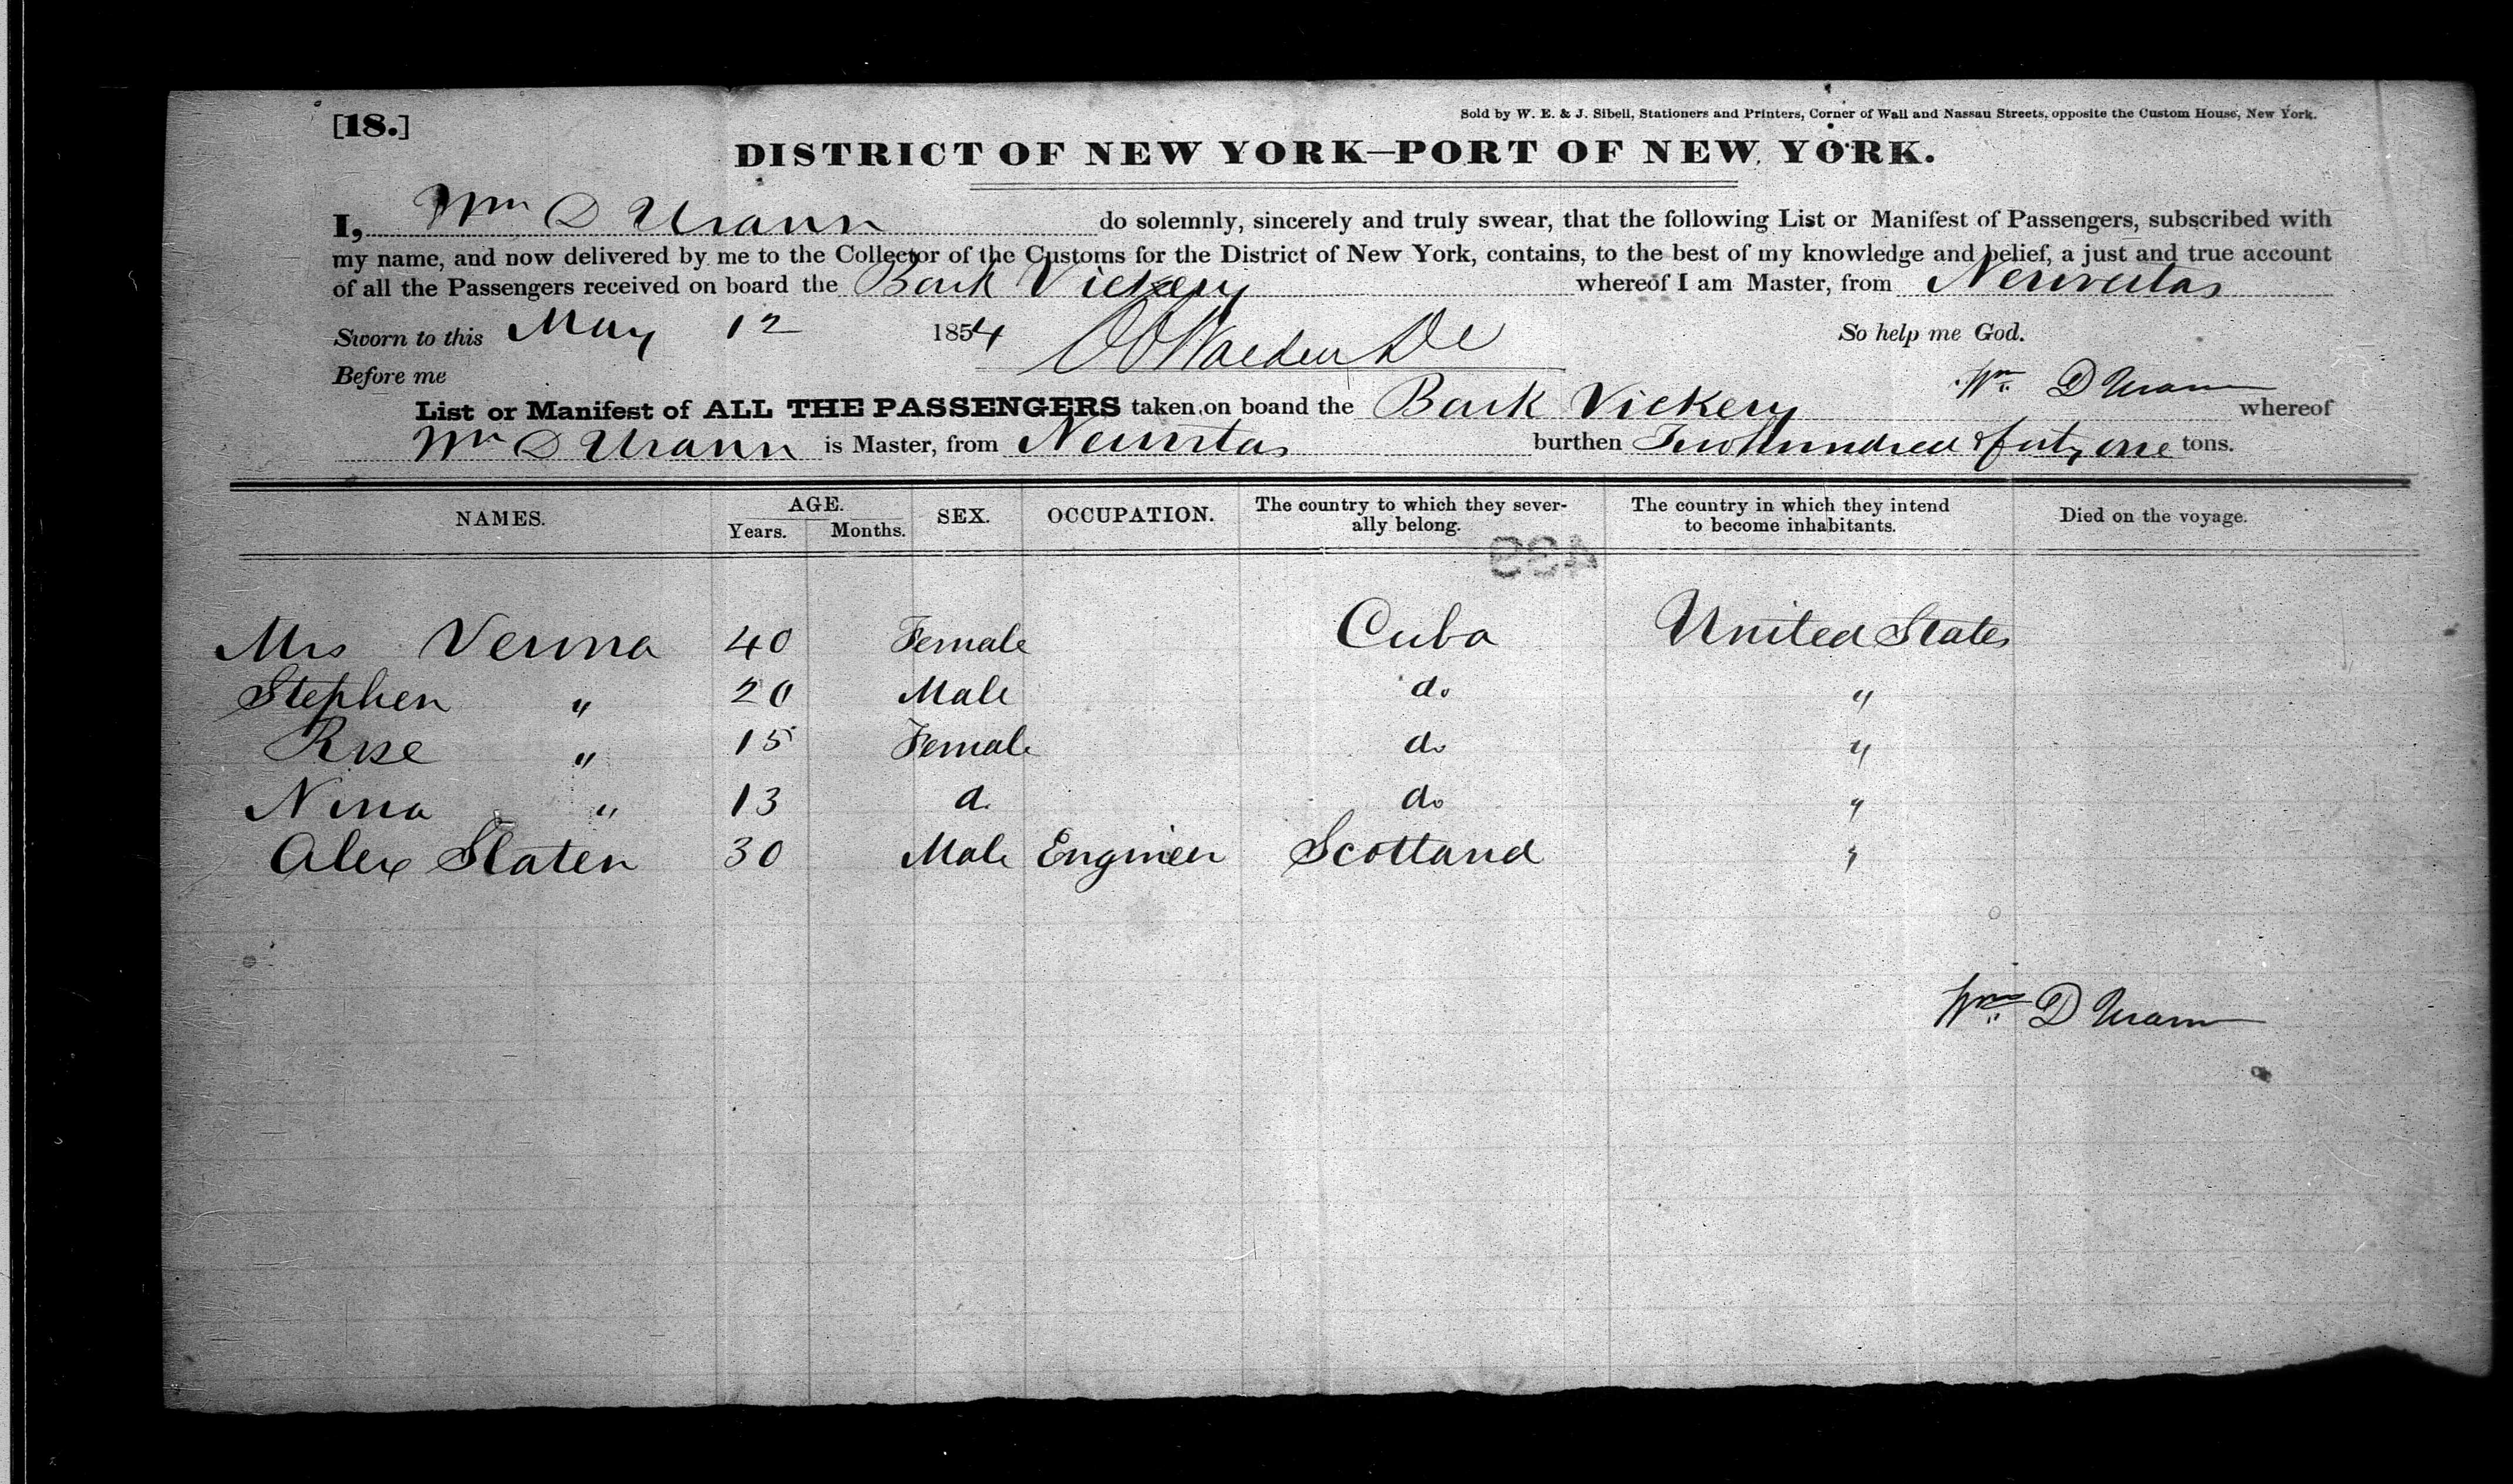 [18.]
Sold by W. E. & J. Sibell, Stationers and Printers, Corner of Wall and Nassau Streets, opposite the Custom House, New York.
DISTRICT OF NEW YORK—PORT OF NEW YORK.
I, Wm D Urann do solemnly, sincerely and truly swear, that the following List or Manifest of Passengers, subscribed with
my name, and now delivered by me to the Collector of the Customs for the District of New York, contains, to the best of my knowledge and belief, a just and true account
of all the Passengers received on board the Bark Vickery whereof I am Master, from
Sworn to this May 12 1854 So help me God.
Before me Wm D Urann
List or Manifest of ALL THE PASSENGERS taken on boand the Bark Vickery whereof
Wm D Urann is Master, from burthen Two Hundred & one tons.
NAMES. AGE. SEX. OCCUPATION. The country to which they sever- The country in which they intend Died on the voyage.
Years. Months. ally belong. to become inhabitants.
499
Mrs 40 Female Cuba United States
Stephen " 20 Male do "
Rose " 15 Female do "
Nina " 13 d. do "
Alex Slaten 30 Male Engineer Scotland "
Wm D Urann